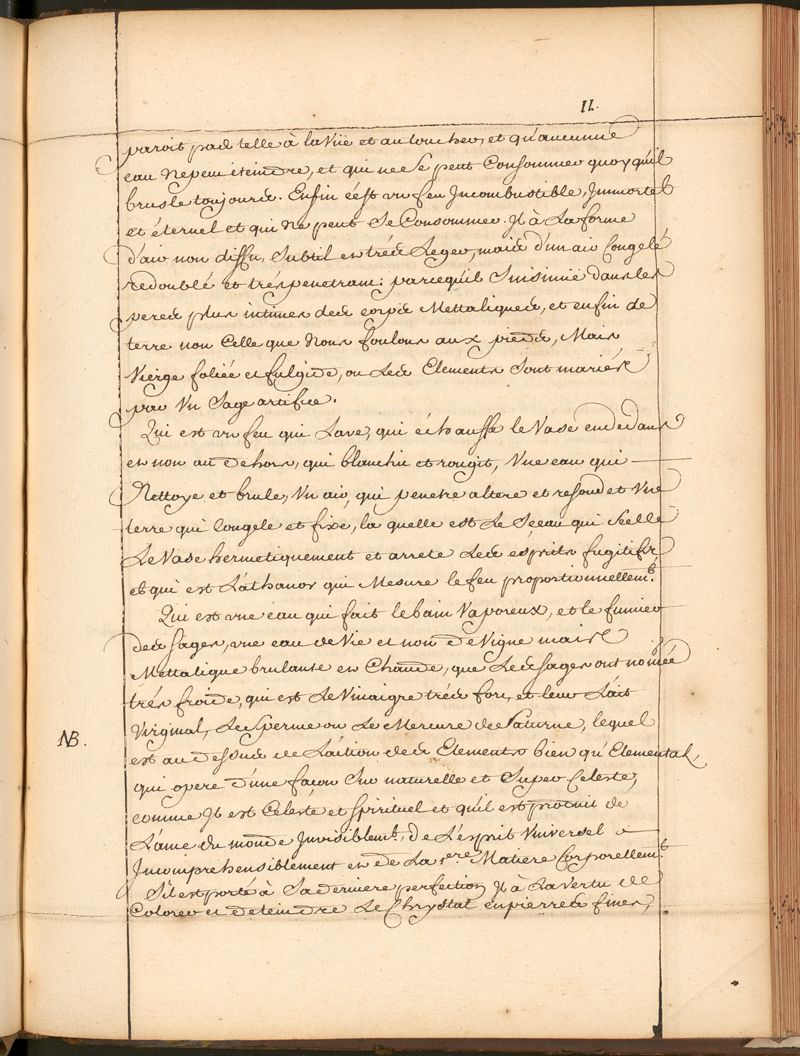 11.
paroit pas telle à la Vüe et au toucher, et qu'aucunne
eau ne peu éteindre, et qui ne se peut Consommer quoy qu'il
brusle toujours. Enfin c'est un feu Incombustible, Immortel
et éternel et qui ne peut se Consommer. Il à la forme
d'air non diffu, subtil et trés Leger, mais d'un air Congelé
redoublé et trés penetrant: parcequ'il s'insinüe dans les
pores plus intimes des corps Mettaliques, et enfin de
terre non Celle que Nous foulons aux pieds, Mais
Vierge foliée et fulgide, ou Les Elements sont mariés
par Un sage artifice.
Qui est un feu qui Lave, qui échauffe le Vase en dedans
et non au dehors, qui blanchit et rougit, Une eau qui
Nettoye et brule, Un air, qui penetre altere et resoud et Une
terre qui Congele et fixe, la quelle est Le Sceau qui scelle
Le Vase hermetiquement et arrete Les esprits fugitifs,
et qui est L'athanor qui Mesure le feu proportionnellemt.
Qui est une eau qui fait le bain Vaporeux, et le fumier
des sages, une eau de Vie et non de Vigne mais
Mettalique brulante et Chaude, que Les sages ont nomée
trés froide, qui est Le Vinaigre trés fort, et leur Lait
Virginal, Le sperme ou Le Mercure de Saturne, lequel
NB.
est au dessus de L'action des Elements bien qu'Elemental,
qui opere d'une façon sur naturelle et super Celeste,
comme Il est Celeste et spirituel et qu'il est produit de
L'ame du monde Invisiblemt, de L'esprit Universel
Incomprehensiblement et de La 1ere Matiere Corporellemt.
S'il est porté à Sa derniere perfection Il à La Vertu de
Colorer et de teindre Le Chrystal en pierres fines,